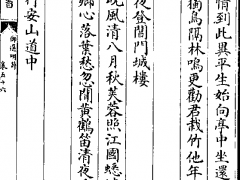 情到此異平生始向亭中坐還
鳥隔林鳴更勸君栽竹他年
夜登閶門城樓
晚風清八月秋芙蓉照江國蟋
鄉心落葉愁忽聞黃鶴笛清夜
行安山道中
御選明詩
卷五十六